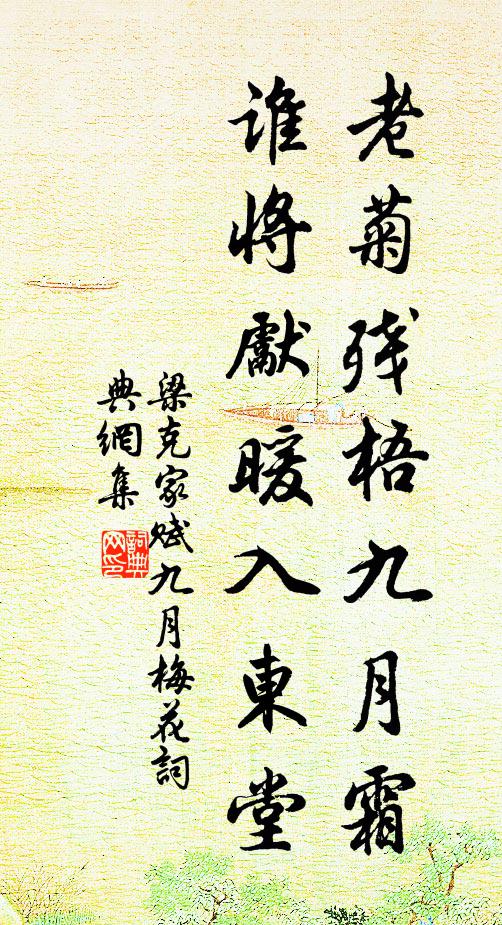 老菊残梧九月霜
谁将獻暖入東堂
梁克家赋九月梅花詞
典網集
詞典网印